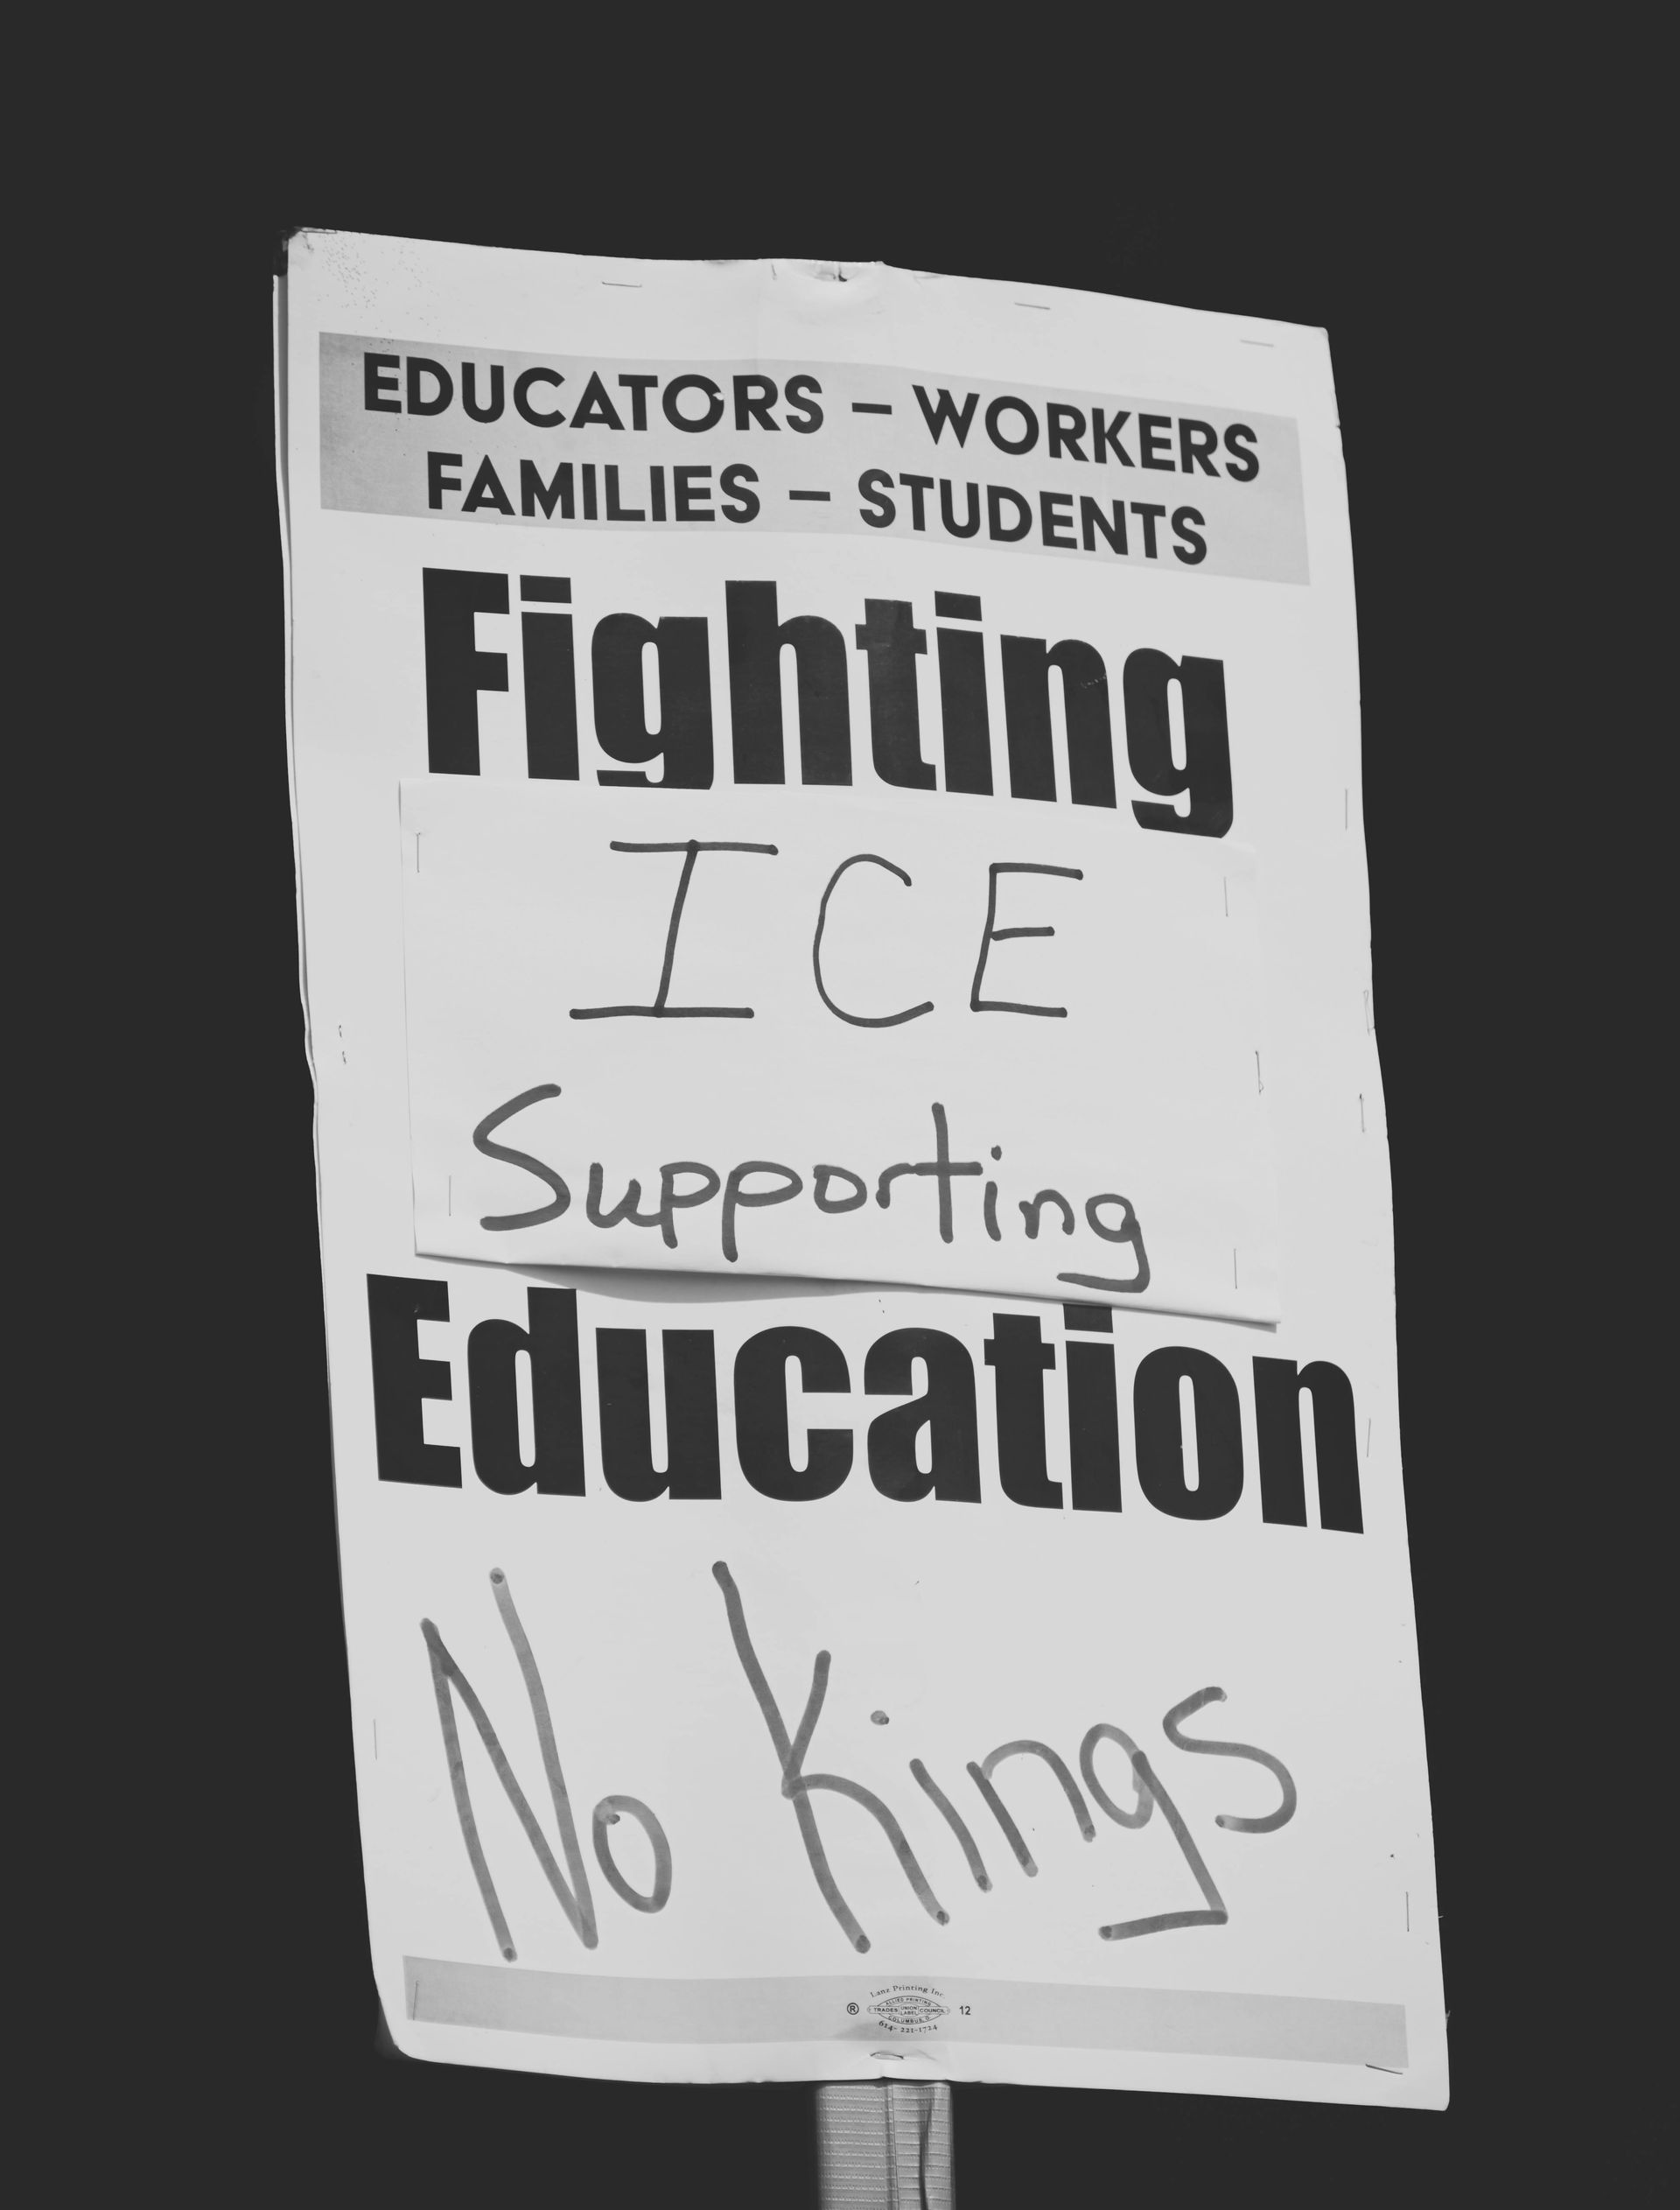 EDUCATORS – WORKERS
FAMILIES – STUDENTS
Fighting
ICE
Supporting
Education
No Kings
Lanz Printing Inc
® ALLIED PRINTING 12
TRADES UNION LABEL COUNCIL
COLUMBUS, O
614-221-1724